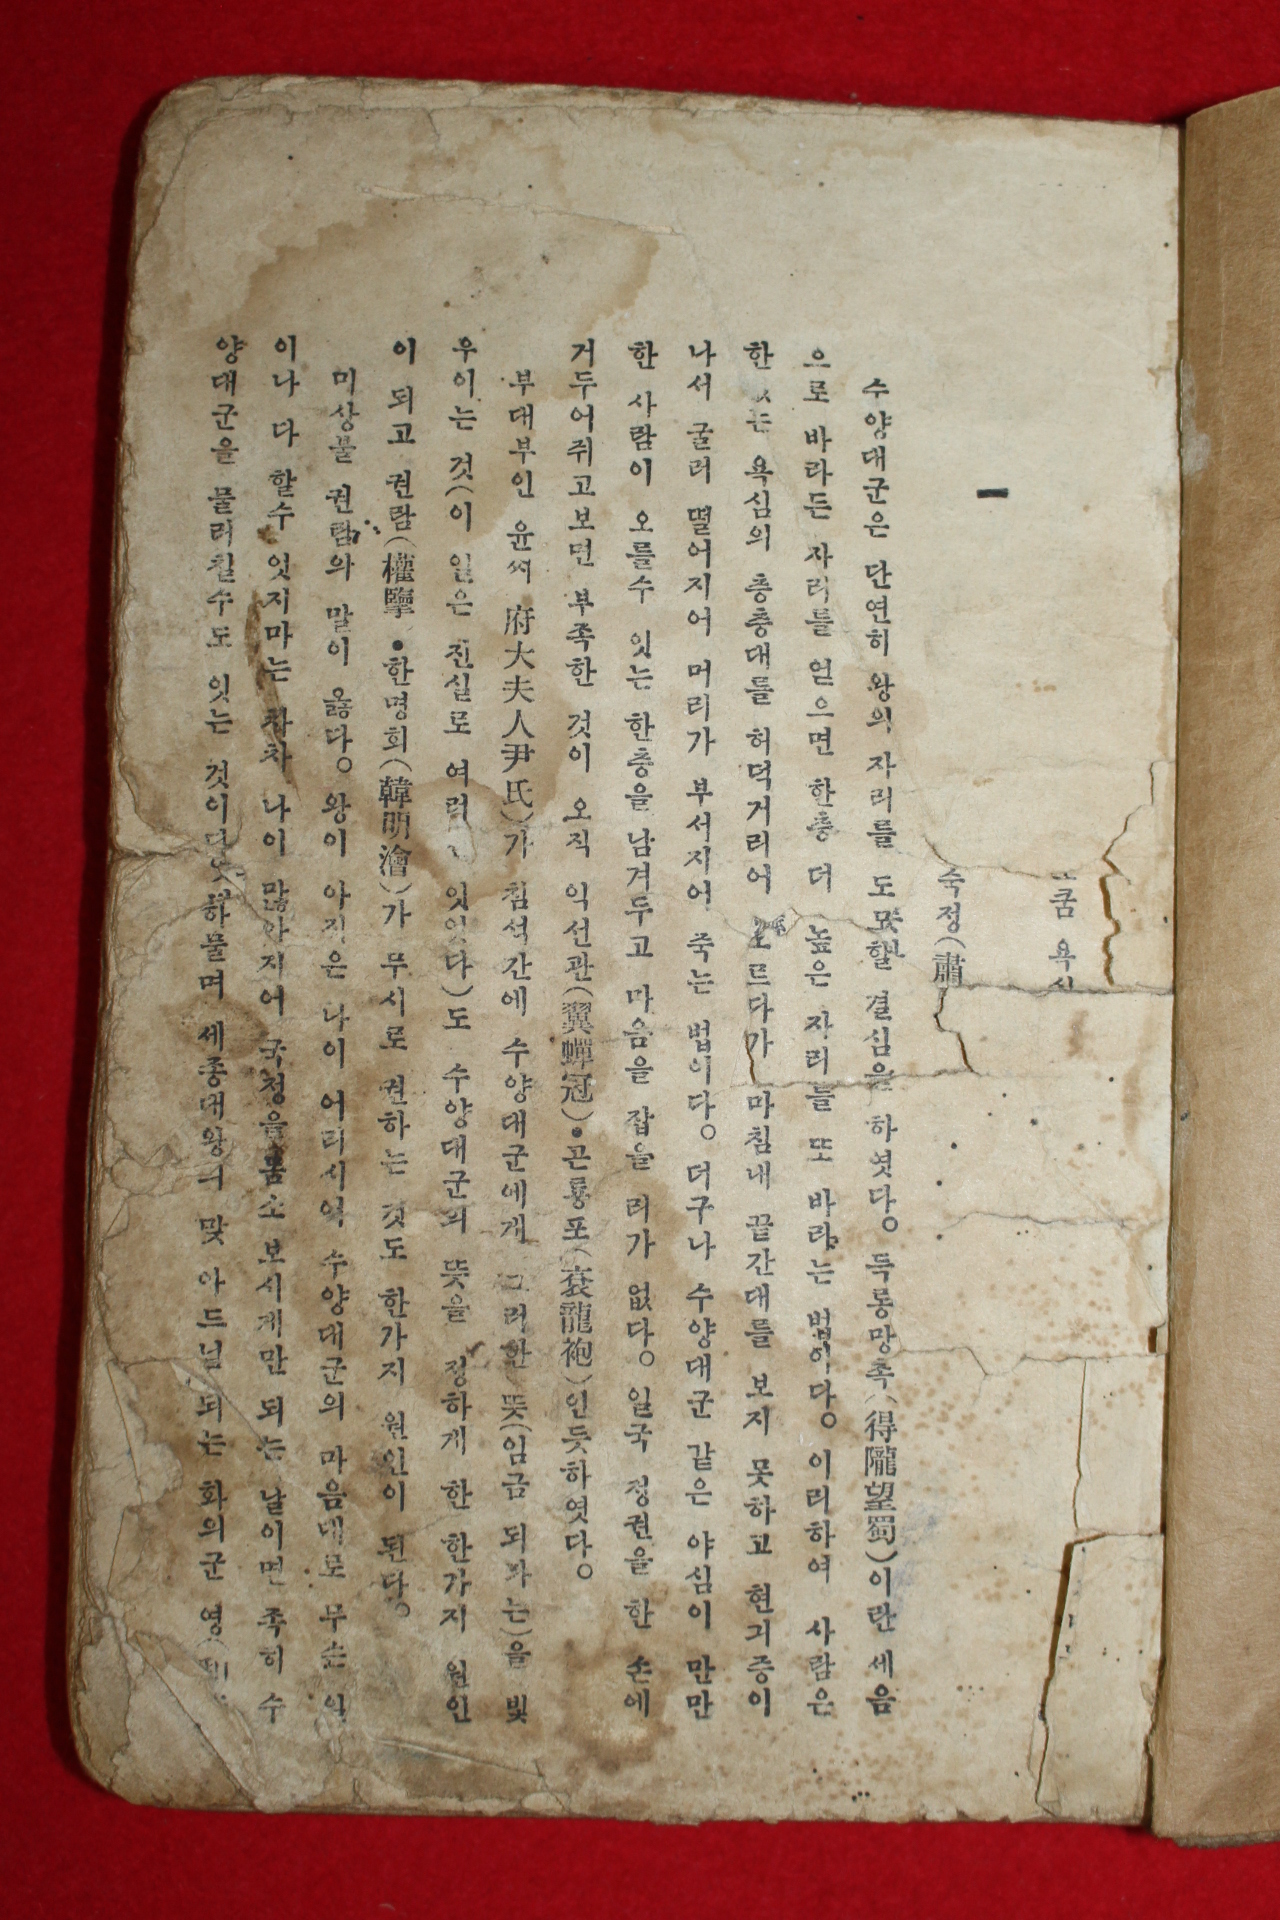 쿰 욕
숙정(肅
一
수양대군은 단연히 왕의 자리를 도모할 결심을 하엿다。 득롱망촉(得隴望蜀)이란 세음
으로 바라든 자리를 얻으면 한층 더 높은 자리를 또 바라는 법이다。 이리하여 사람은
한 없는 욕심의 층층대를 허덕거리어 오르다가 마침내 끝간대를 보지 못하고 현긔증이
나서 굴러 떨어지어 머리가 부서지어 죽는 법이다。 더구나 수양대군 같은 야심이 만만
한 사람이 오를수 잇는 한층을 남겨두고 마음을 잡을 리가 없다。 일국 정권을 한 손에
거두어쥐고보면 부족한 것이 오직 익선관(翼蟬冠)•곤룡포(袞龍袍)인듯하엿다。
부대부인 윤씨 府大夫人尹氏)가 침석간에 수양대군에게 그러한 뜻(임금 되라는)을 빛
우이는 것(이 일은 진실로 여러 잇엇다)도 수양대군의 뜻을 정하게 한 한가지 원인
이 되고 권람(權擥)•한명회(韓明澮)가 무시로 권하는 것도 한가지 원인이 된다。
미상불 권람의 말이 옳다。 왕이 아직은 나이 어리시어 수양대군의 마음대로 무슨 일
이나 다 할수 잇지마는 차차 나이 많아지어 국정을 몸소 보시게만 되는 날이면 족히 수
양대군을 물리칠수도 잇는 것이다。 하물며 세종대왕의 맞 아드님 되는 화의군 영(